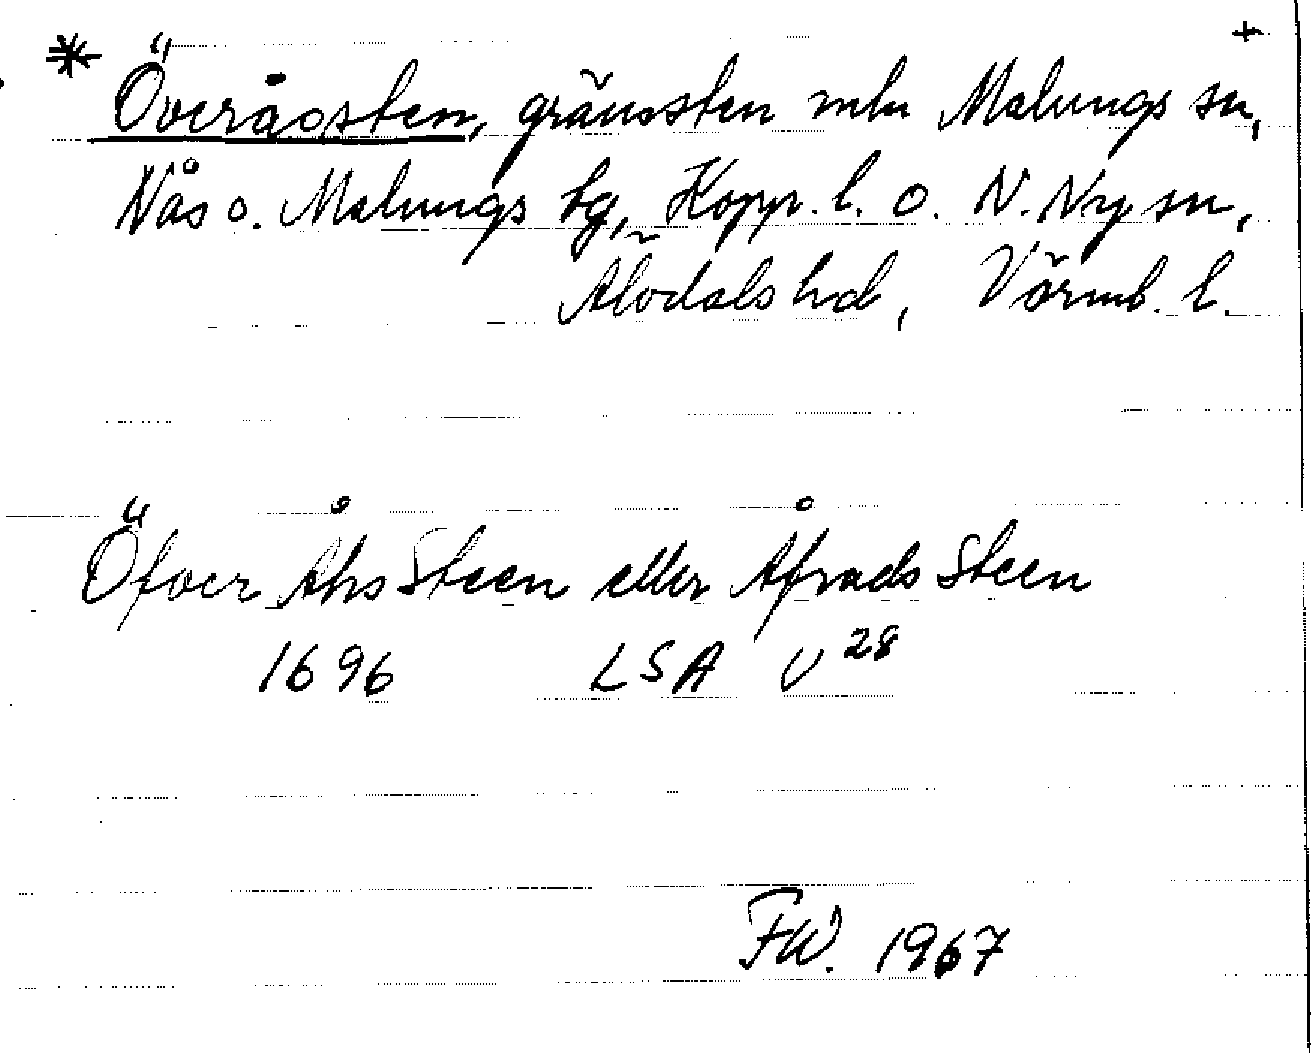 * Överåsten, gränssten mln Malungs sn, +
Nås o. Malungs tg, Kopp. l. o. N. Ny sn,
Älvdals hd, Värml. l.
Öfver Åhs Steen eller Åfrads Steen
1696 LSA U 28
FW. 1967